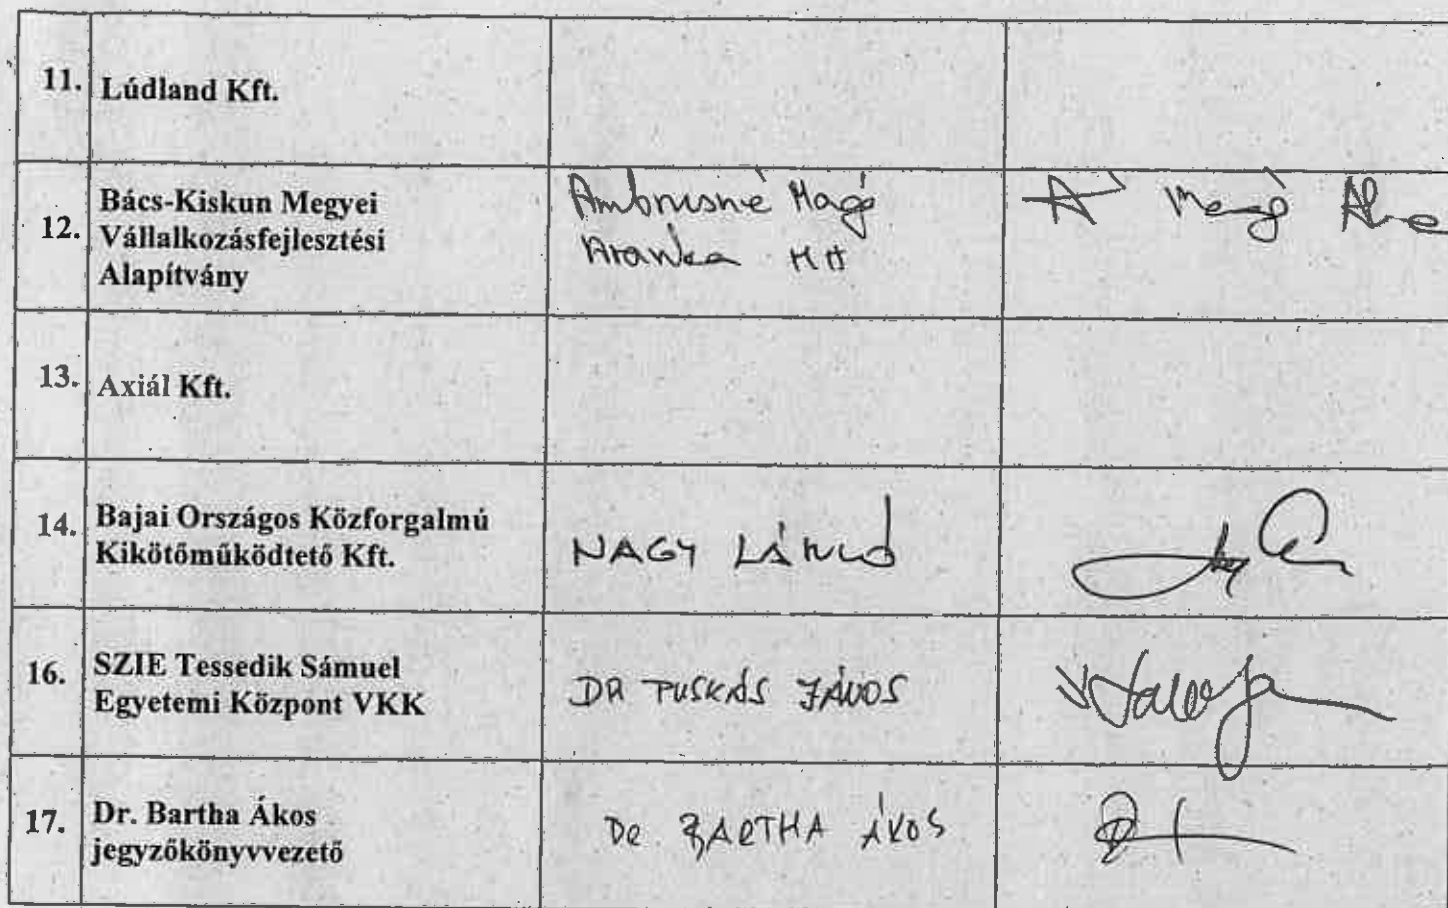 11. Lúdland Kft.
12. Bács-Kiskun Megyei
Vállalkozásfejlesztési
Alapítvány
Ambrusné Magó
Aranka
13. Axiál Kft.
14. Bajai Országos Közforgalmú
Kikötőműködtető Kft.
NAGY
16. SZIE Tessedik Sámuel
Egyetemi Központ VKK
DR PUSKÁS JÁNOS
17. Dr. Bartha Ákos
jegyzőkönyvvezető
Dr BARTHA ÁKOS